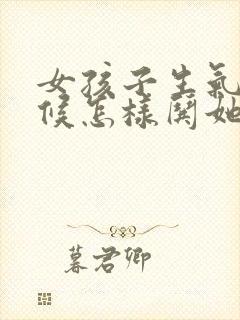 女孩子生氣
候怎樣闋她
暮君卿